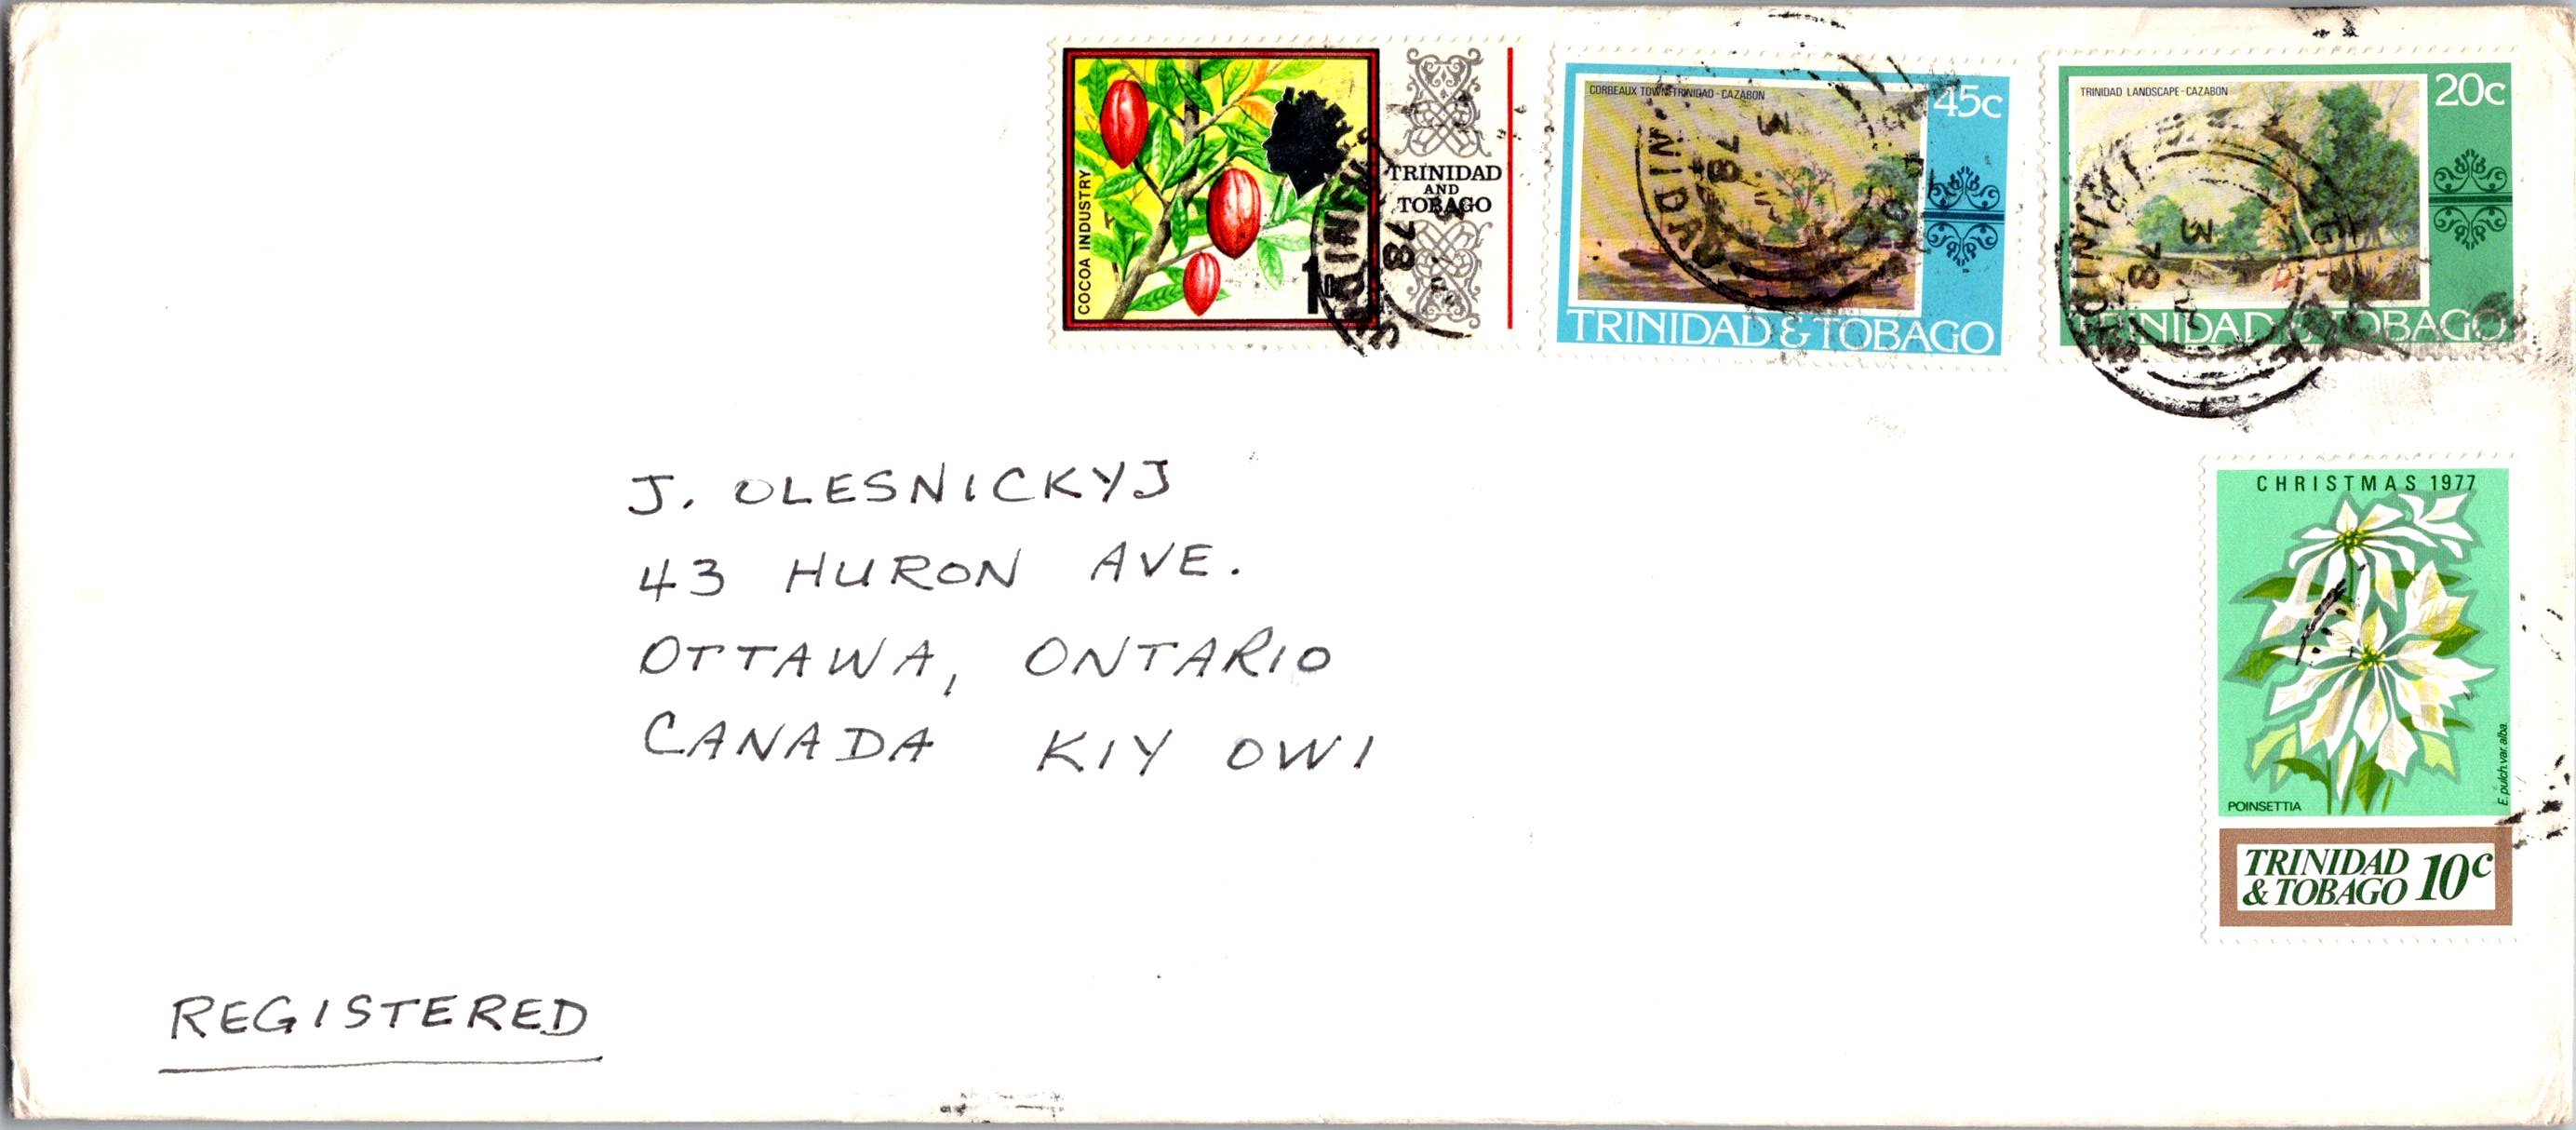 COCOA INDUSTRY
TRINIDAD
AND
TOBAGO
CORBEAUX TOWN TRINIDAD - CAZABON
45c
TRINIDAD & TOBAGO
TRINIDAD LANDSCAPE - CAZABON
20c
TRINIDAD & TOBAGO
78
TRINIDAD
3
78
TRINIDAD
3
78
J. OLESNICKYJ
43 HURON AVE.
OTTAWA, ONTARIO
CANADA K1Y OW1
REGISTERED
CHRISTMAS 1977
POINSETTIA
E. pulch. var. alba.
TRINIDAD
& TOBAGO 10c